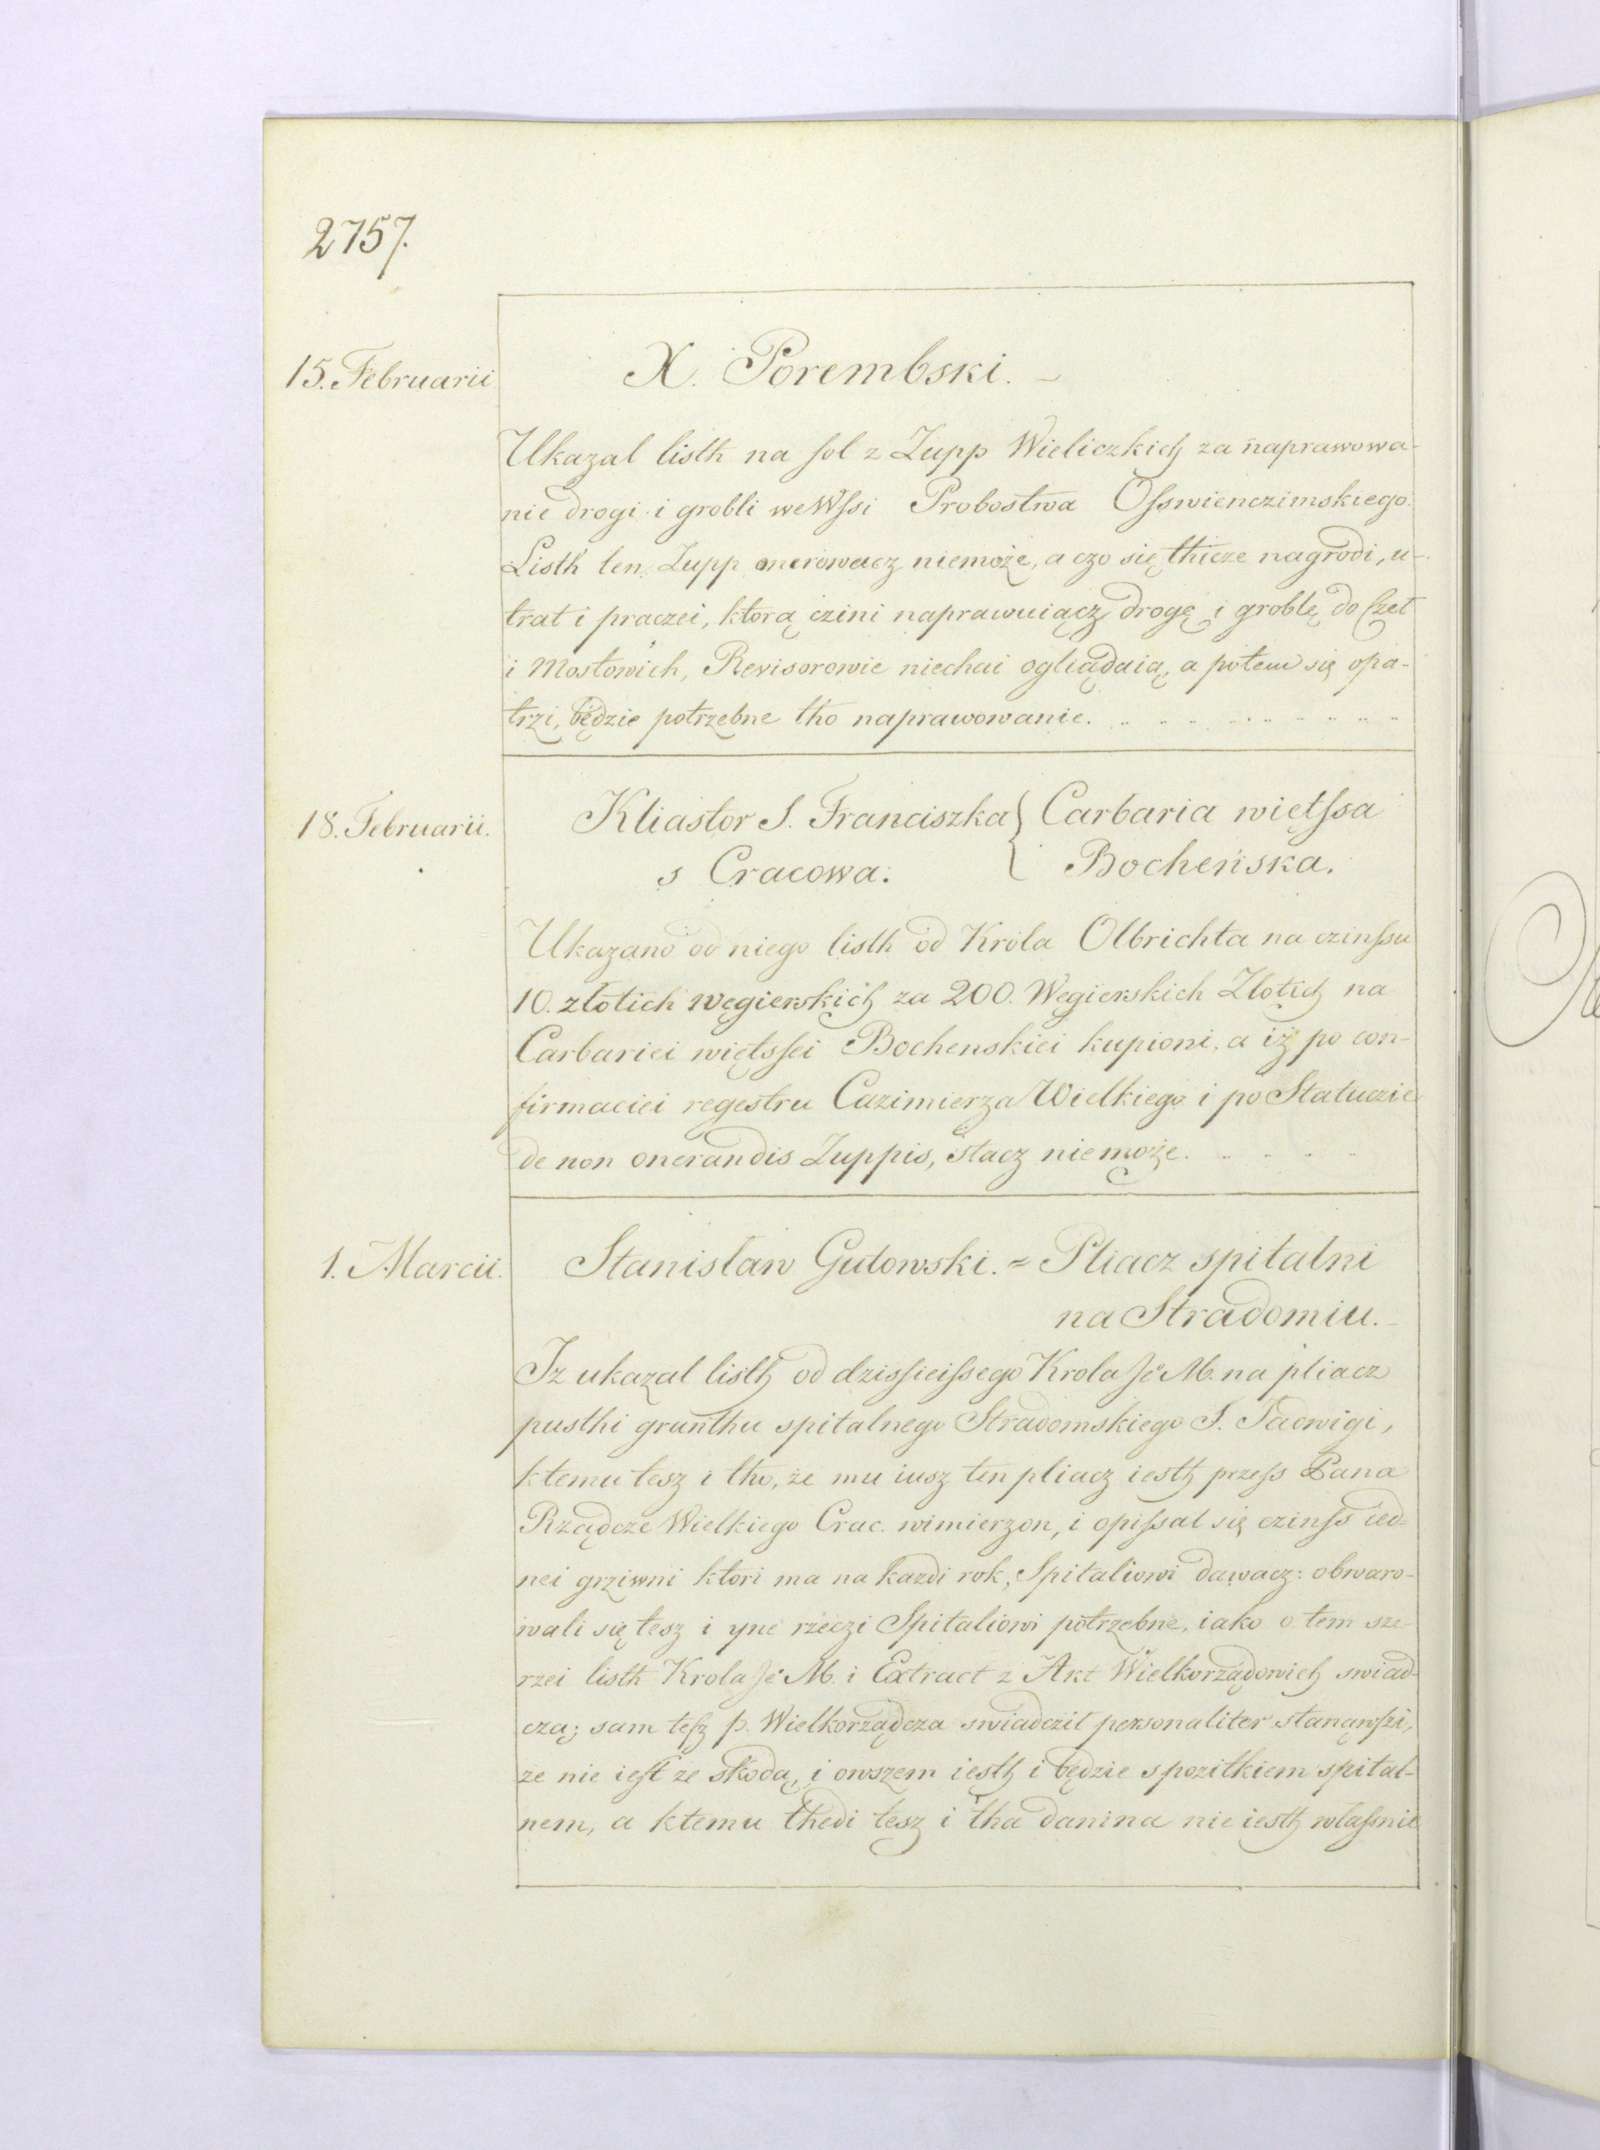 2757.
15. Februarii
X. Porembski.
Ukazal listh na sol z Zupp Wieliczkich za naprawowa-
nie drogi i grobli we Wssi Probostwa Osswienczimskiego.
Listh ten Zupp onerowacz niemoże, a czo się thicze nagrodi, u-
trat i praczei, ktorą czini naprawuiącz drogę i groblę do Czel
i Mostowich, Revisorowie niechai ogliądaią, a potem się opa-
trzi, będzie potrzebne tho naprawowanie.
18. Februarii.
Kliastor S. Franciszka { Carbaria więtssa
s Cracowa. Bocheńska.
Ukazano od niego listh od Króla Olbrichta na czinssu
10. złotich węgierskich za 200. Wegierskich Złotich na
Carbariei więtssei Bochenskiei kupioni. a iż po con-
firmaciei regestru Cazimierza Wielkiego i po Statuczie
de non onerandis Zuppis, stacz niemoże.
1. Marcii.
Stanislaw Gutowski. = Pliacz spitalni
na Stradomiu.
Iz ukazal listh od dzissieissego Krola Je M. na pliacz
pusthi grunthu spitalnego Stradomskiego S. Jadwigi,
ktemu tesz i tho, że mu iusz ten pliacz iesth przess Pana
Rządcze Wielkiego Crac. wimierzon, i opissal się czinss ied-
nei grziwni ktori ma na kazdi rok, Spitaliowi dawacz: obwaro-
wali się tesz i yne rzeczi Spitaliowi potrzebne, iako o tem sze-
rzei listh Krola Je M. i Extract z Akt Wielkorządowich swiad-
cza; sam tesz p. Wielkorządcza swiadczil personaliter stanąwszi,
że nie iest ze skodą, i owszem iesth i będzie s pozitkiem spital-
nem, a ktemu thedi tesz i tha danina nie iesth własnie